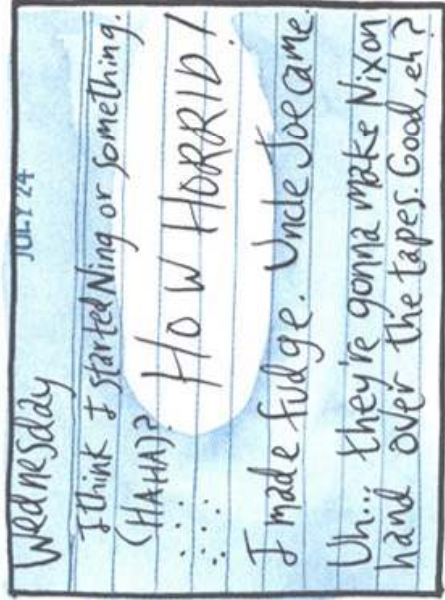 Wednesday JULY 24
I think I started Ning or something.
(HAHA)? HOW HORRID!
I made fudge. Uncle Joe came.
Uh... they're gonna make Nixon
hand over the tapes. Good, eh?